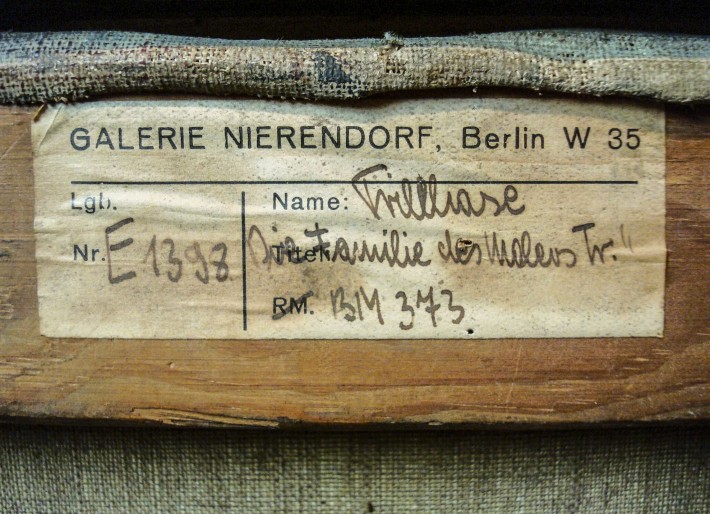 GALERIE NIERENDORF, Berlin W 35
Lgb. Name: Trillhase
Nr. E 1398 Titel: Die Familie des Malers Tr."
RM. BM 373